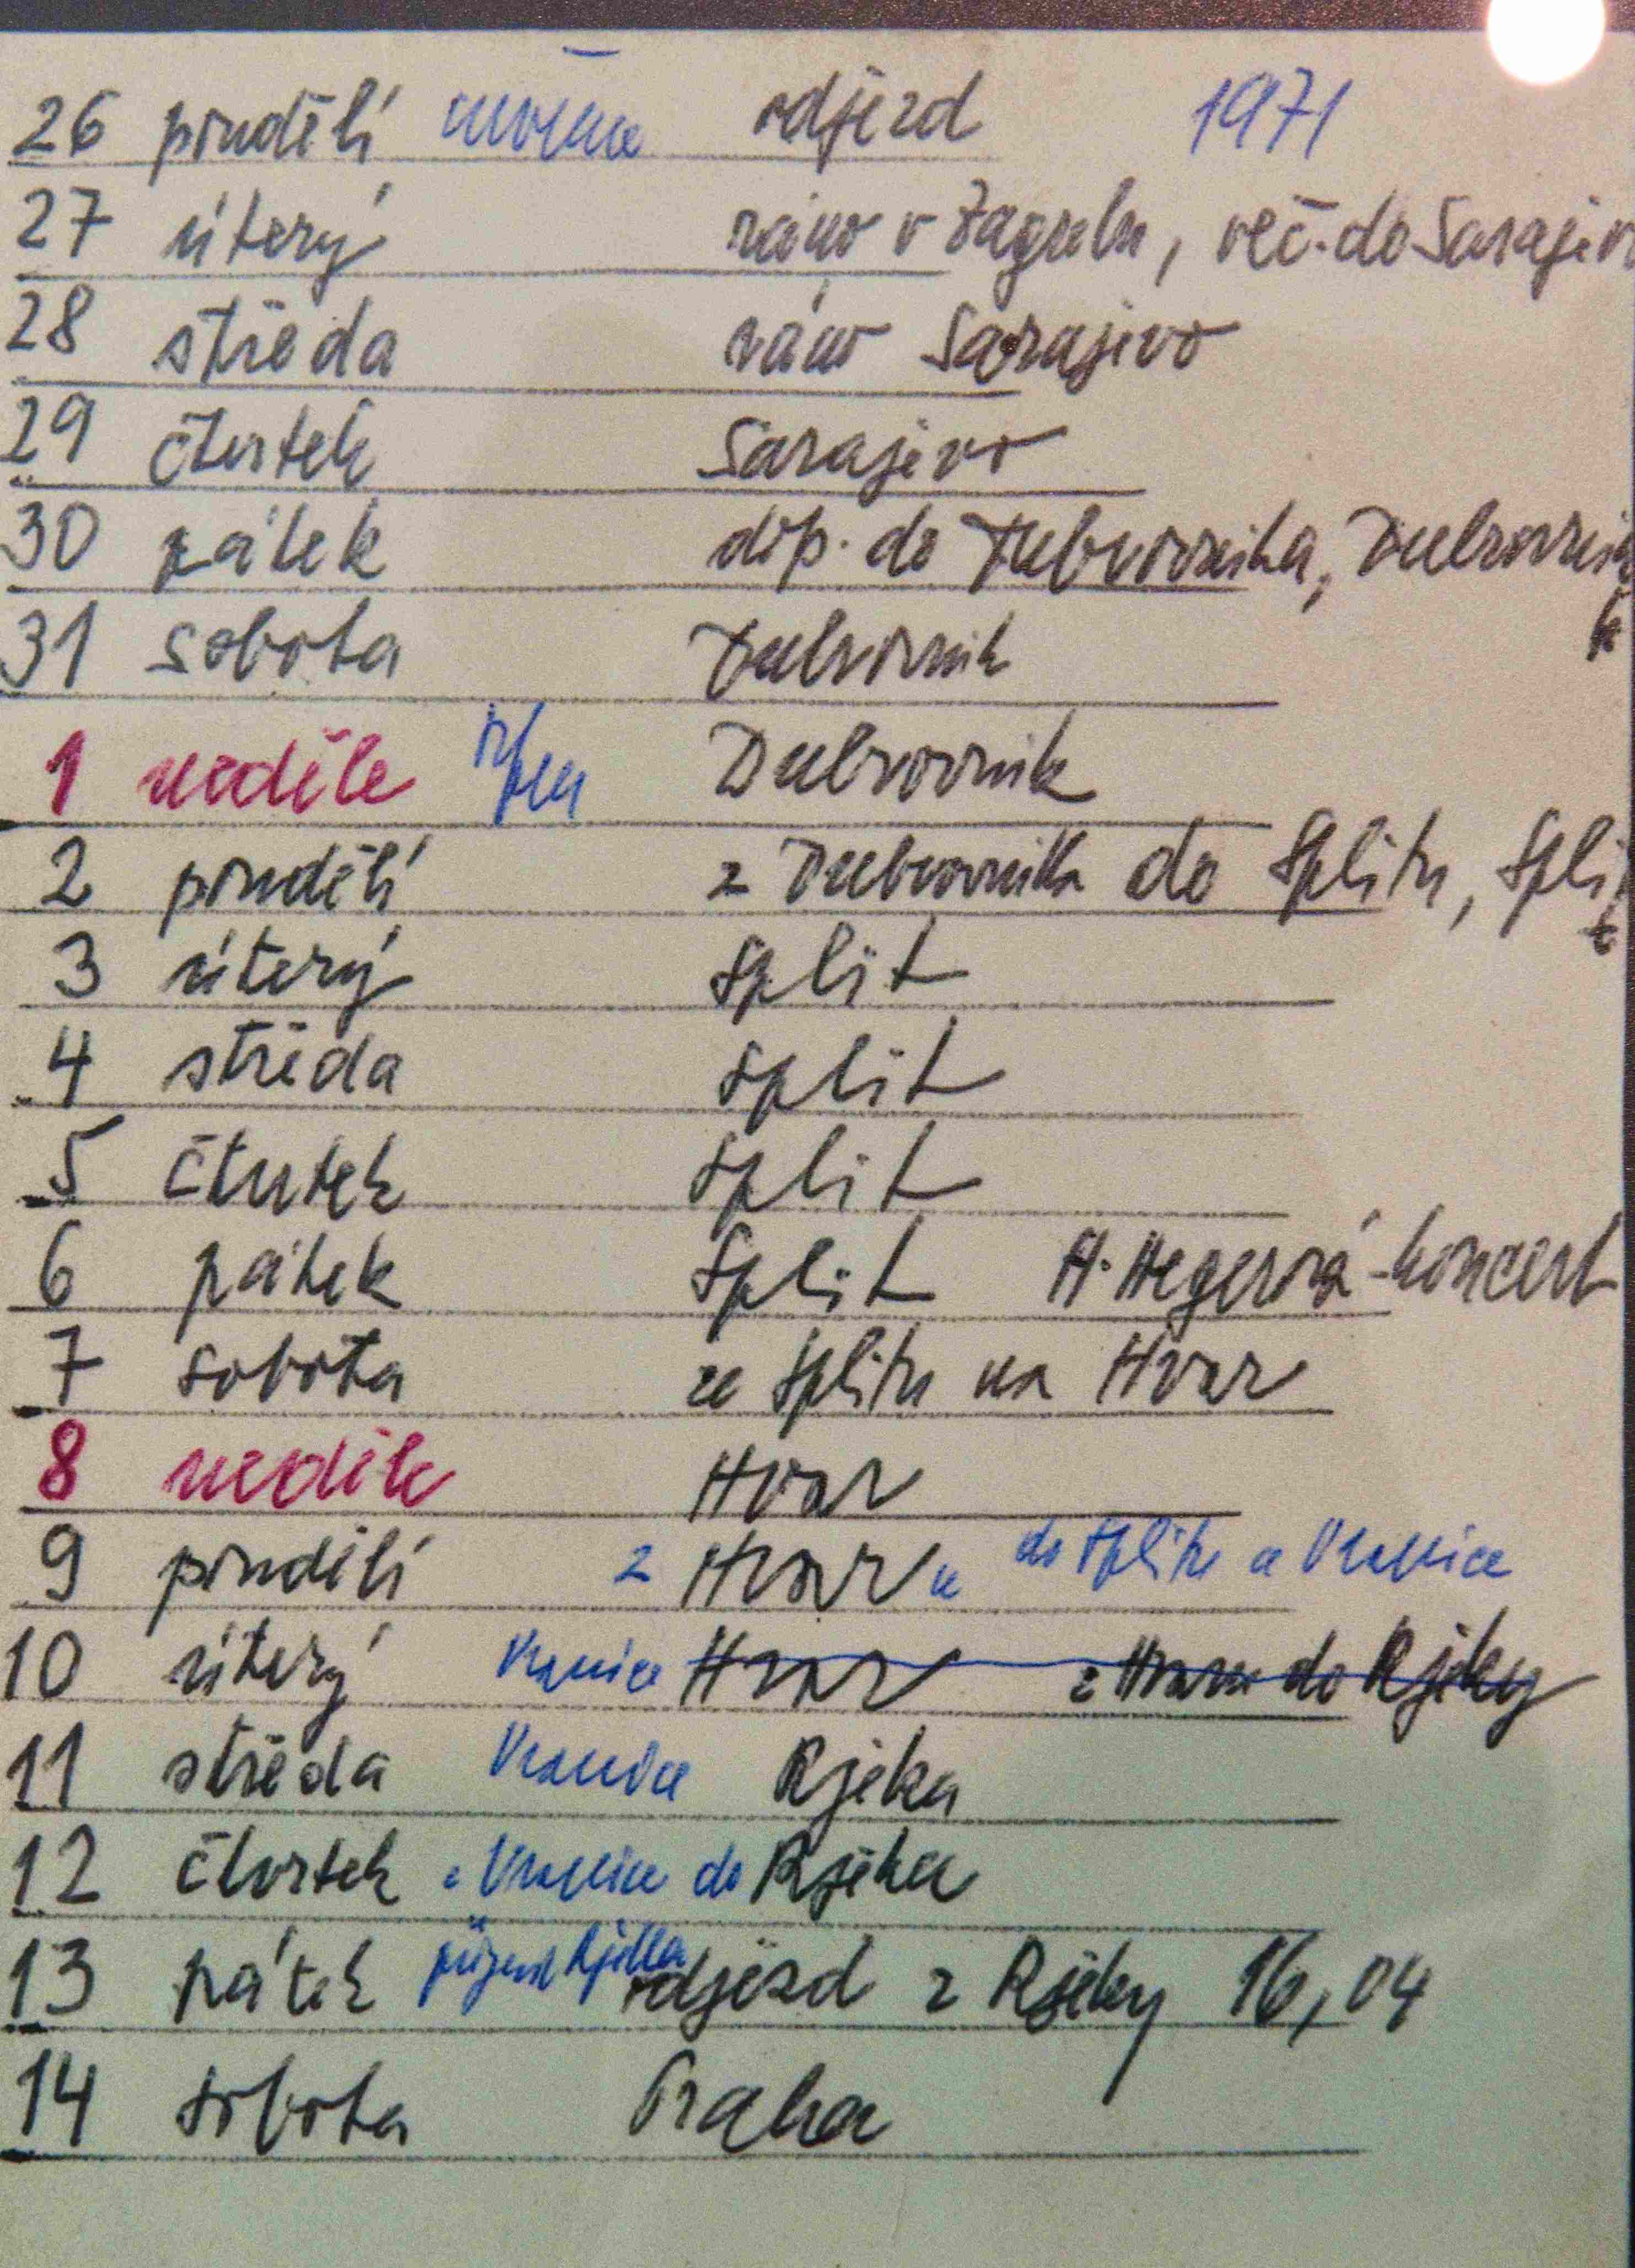 26 pondělí odjezd 1971
27 úterý ráno v Zagrebu, več. do Sarajev
28 středa ráno Sarajevo
29 čtvrtek Sarajevo
30 pátek dop. do Dubrovnika, Dubrovnik
31 sobota Dubrovnik
1 neděle srpen Dubrovnik
2 pondělí z Dubrovnika do Splitu, Split
3 úterý Split
4 středa Split
5 čtvrtek Split
6 pátek Split H. Hegerová - koncert
7 sobota ze Splitu na Hvar
8 neděle Hvar
9 pondělí z Hvaru do Splitu a Vranjice
10 úterý Hvar z Hvaru do Rjeky
11 středa Rjeka
12 čtvrtek do Rjeka
13 pátek příjezd Rjeka odjezd z Rjeky 16,04
14 sobota Praha